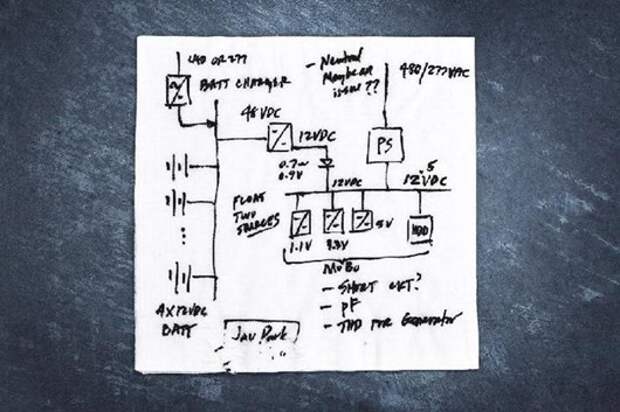 480 OR 277
BATT CHARGER
- Neutral
Maybe an
issue??
480/277VAC
48VDC
12VDC
PS
0.7~
0.9V
12VDC
12.5
VDC
FLOAT
TWO
SOURCES
1.1V
3.3V
5V
HDD
MOBO
- SHORT CKT?
- PF
- THD FOR Generator
4X12VDC
BATT
Jay Park